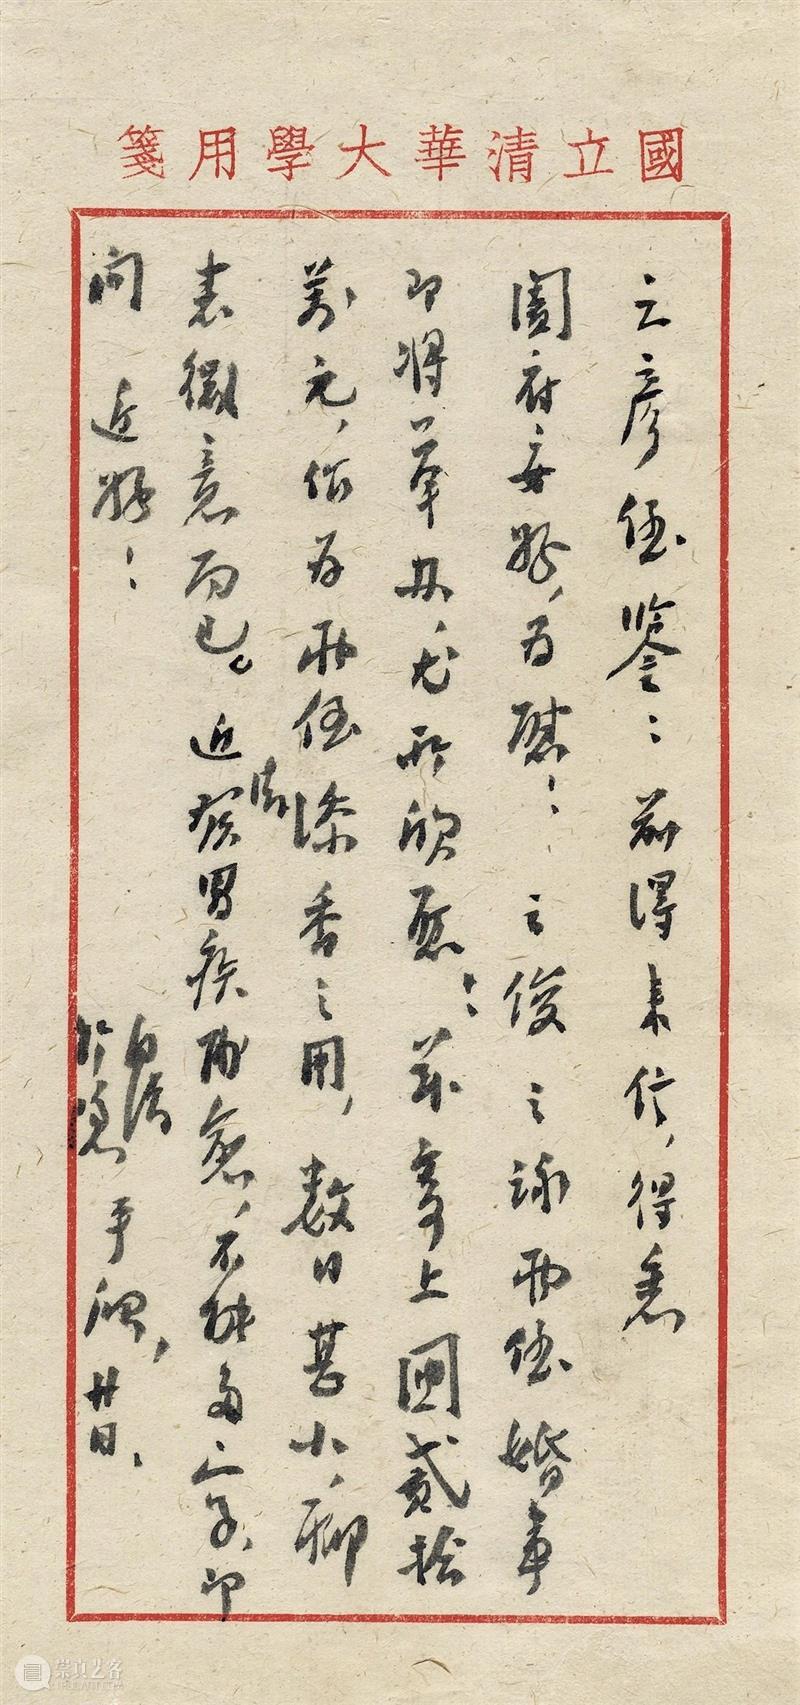 國立清華大學用箋
之彥侄鑒：前得來信，得悉
闔府安好，為慰！之俊之詠兩侄婚事
即將舉办，尤所欣慰！茲寄上國貳拾
萬元，作为兩侄添香之用，數目甚小，聊
表微意而已。近發胃疾甫愈，不能多寫，即
問 近好！
自清
竹隱 手啟，廿日、
崇真艺客